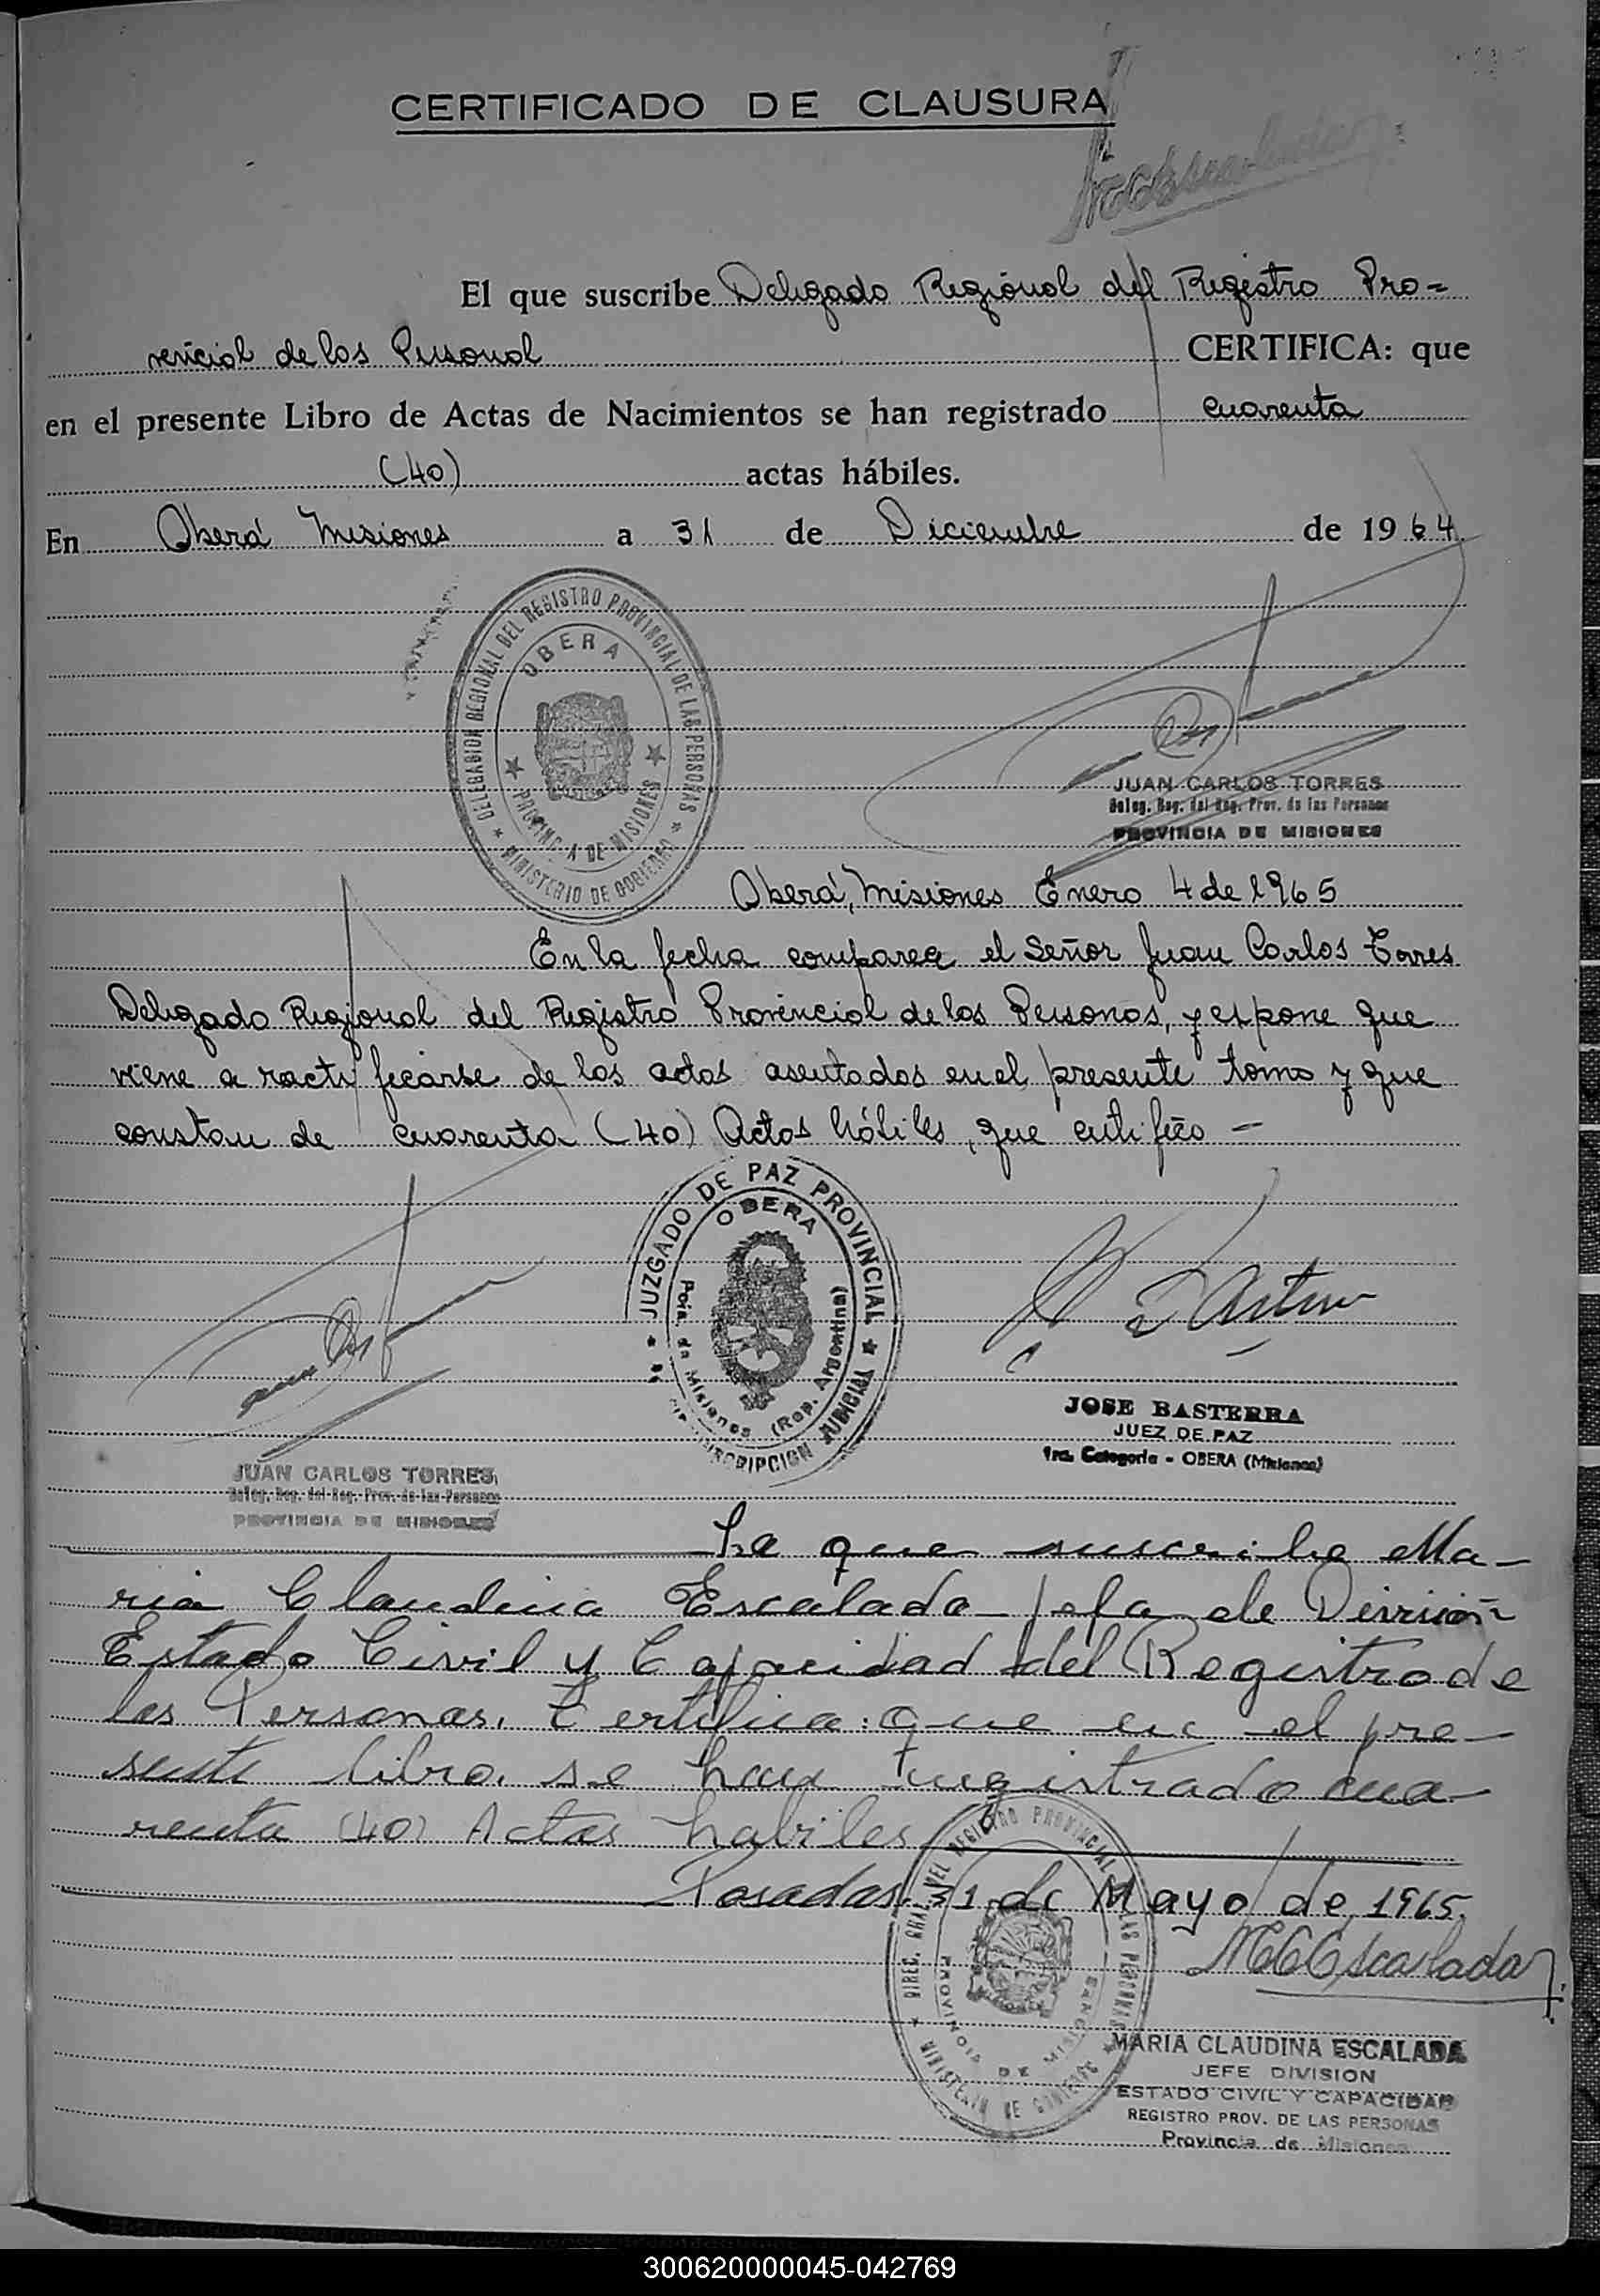 CERTIFICADO DE CLAUSURA
El que suscribe Delegado Regional del Registro Pro=
vincial de las Personal CERTIFICA: que
en el presente Libro de Actas de Nacimientos se han registrado cuarenta
(40) actas hábiles.
En Oberá Misiones a 31 de Diciembre de 1964.
DELEGACION REGIONAL DEL REGISTRO PROVINCIAL DE LAS PERSONAS
OBERA
PROVINCIA DE MISIONES
MINISTERIO DE GOBIERNO
JUAN CARLOS TORRES
Deleg. Reg. del Reg. Prov. de las Personas
PROVINCIA DE MISIONES
Oberá, Misiones Enero 4 de 1965
En la fecha comparece el Señor Juan Carlos Torres
Delegado Regional del Registro Provincial de las Personas, y expone que
viene a ractificarse de las actas asentadas en el presente tomo y que
constan de cuarenta (40) Actas hábiles, que certifico —
JUZGADO DE PAZ PROVINCIAL
OBERA
Pcia. de Misiones (Rep. Argentina)
CIRCUNSCRIPCION JUDICIAL
JOSE BASTERRA
JUEZ DE PAZ
1ra. Categoria - OBERA (Misiones)
JUAN CARLOS TORRES
Deleg. Reg. del Reg. Prov. de las Personas
PROVINCIA DE MISIONES
La que suscribe Ma-
ria Claudina Escalada jefa de División
Estado Civil y Capacidad del Registro de
las Personas. Certifica: que en el pre-
sente libro. se han registrado cua-
renta (40) Actas habiles
Posadas. 31 de Mayo de 1965.
MCCEscalada
DIREC. GRAL. DEL REGISTRO PROVINCIAL DE LAS PERSONAS
PROVINCIA DE MISIONES
MINISTERIO DE GOBIERNO
MARIA CLAUDINA ESCALADA
JEFE DIVISION
ESTADO CIVIL Y CAPACIDAD
REGISTRO PROV. DE LAS PERSONAS
Provincia de Misiones
300620000045-042769